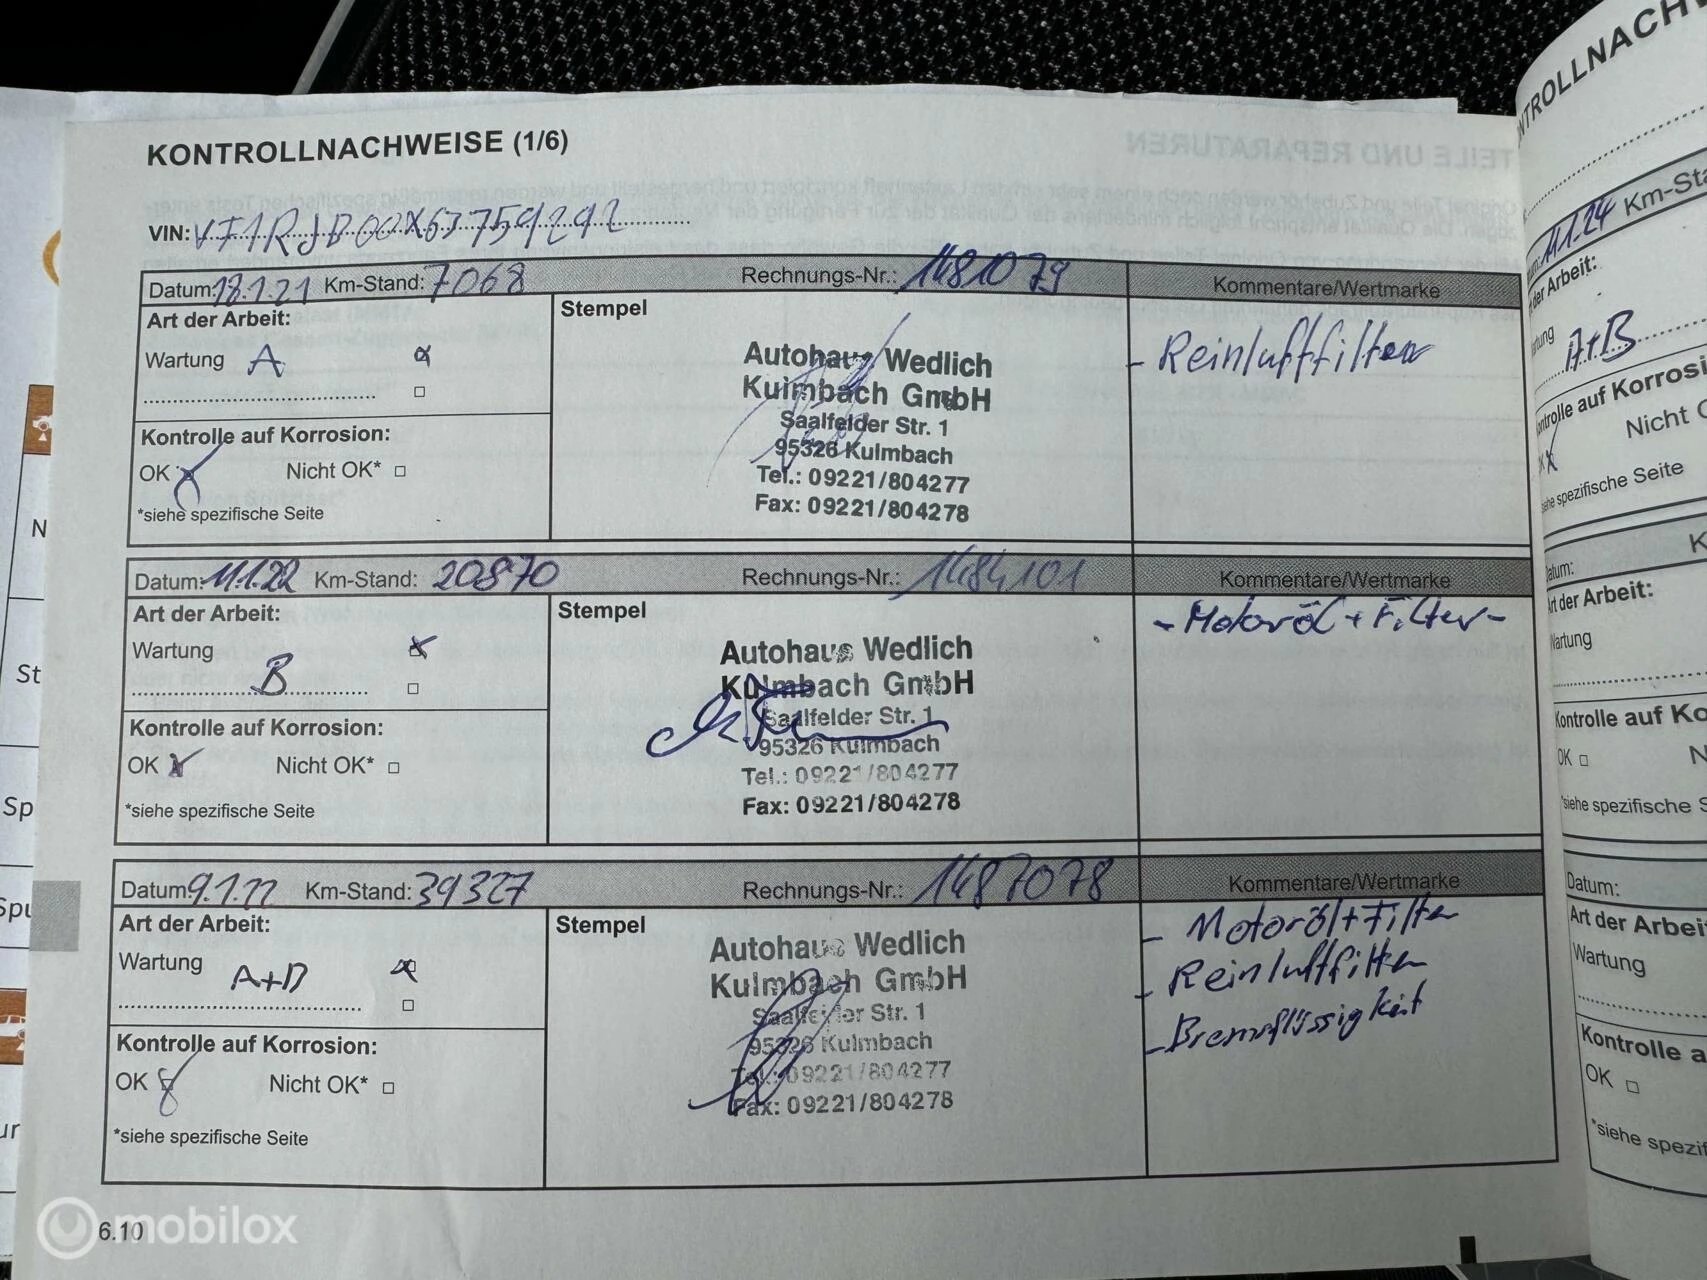 KONTROLLNACHWEISE (1/6)
VIN: VF1RJB00X63759292
Datum: 18.1.21 Km-Stand: 7068 Rechnungs-Nr.: 1481079 Kommentare/Wertmarke
Art der Arbeit:
Wartung A
Kontrolle auf Korrosion:
OK Nicht OK*
*siehe spezifische Seite
Stempel
Autohaus Wedlich
Kulmbach GmbH
Saalfelder Str. 1
95326 Kulmbach
Tel.: 09221/804277
Fax: 09221/804278
- Reinluftfilter
Datum: 11.1.22 Km-Stand: 20870 Rechnungs-Nr.: 1484101 Kommentare/Wertmarke
Art der Arbeit:
Wartung
B
Kontrolle auf Korrosion:
OK Nicht OK*
*siehe spezifische Seite
Stempel
Autohaus Wedlich
Kulmbach GmbH
Saalfelder Str. 1
95326 Kulmbach
Tel.: 09221/804277
Fax: 09221/804278
- Motoröl + Filter -
Datum: 9.1.22 Km-Stand: 39327 Rechnungs-Nr.: 1487078 Kommentare/Wertmarke
Art der Arbeit:
Wartung A+B
Kontrolle auf Korrosion:
OK Nicht OK*
*siehe spezifische Seite
Stempel
Autohaus Wedlich
Kulmbach GmbH
Saalfelder Str. 1
95326 Kulmbach
Tel.: 09221/804277
Fax: 09221/804278
- Motoröl + Filter
- Reinluftfilter
- Bremsflüssigkeit
6.10
mobilox
11.1.24 Km-Sta
der Arbeit:
A+B
Kontrolle auf Korrosi
Nicht
siehe spezifische Seite
Datum:
Art der Arbeit:
Wartung
Kontrolle auf Ko
OK
*siehe spezifische S
Datum:
Art der Arbei
Wartung
Kontrolle a
OK
*siehe spezif
N
St
Sp
Spu
ur